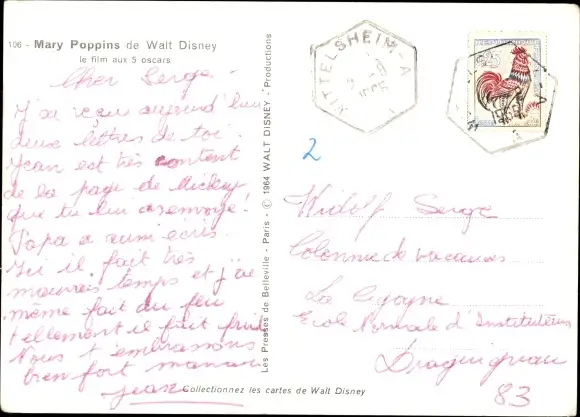 106 - Mary Poppins de Walt Disney
le film aux 5 oscars
Cher Serge
J'ai reçu aujourd'hui
deux lettres de toi.
Jean est très content
de la page de Mickey
que tu lui as envoyé!
Papa a aussi écris.
Ici il fait très
mauvais temps et j'ai
même fait du feu
tellement il fait froid
Nous t'embrassons
bien fort maman
jean
Collectionnez les cartes de Walt Disney
Les Presses de Belleville - Paris - © 1964 WALT DISNEY - Productions
WITTELSHEIM-A
25
2
Widolf Serge
Colonnie de vacances
La Cigogne
Ecole Normale d'Instituteurs
Draguignan
83